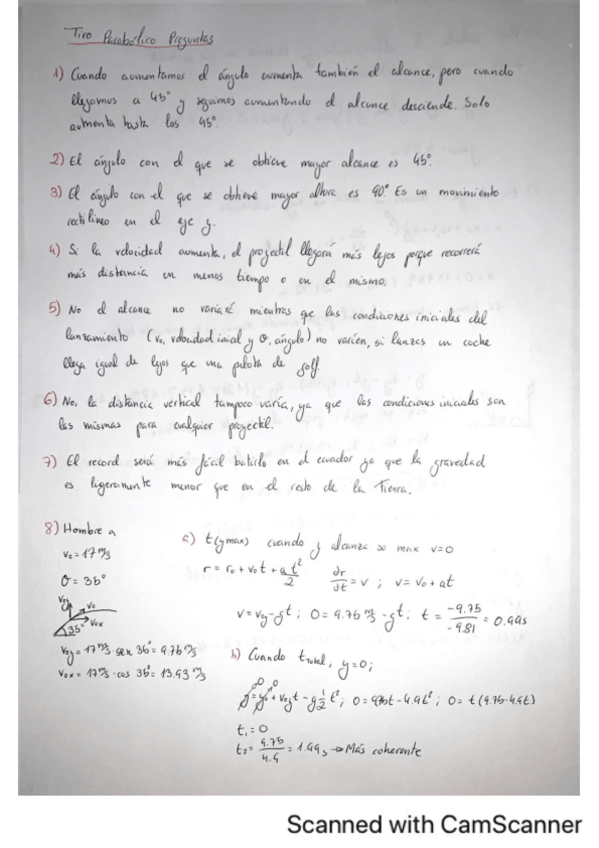 Tiro Parabólico Preguntas
1) Cuando aumentamos el ángulo aumenta también el alcance, pero cuando
llegamos a 45° y seguimos aumentando el alcance desciende. Solo
aumenta hasta los 45°.
2) El ángulo con el que se obtiene mayor alcance es 45°.
3) El ángulo con el que se obtiene mayor altura es 90° Es un movimiento
rectilíneo en el eje y.
4) Si la velocidad aumenta, el projectil llegará más lejos porque recorrerá
más distancia en menos tiempo o en el mismo.
5) No el alcance no variará mientras que las condiciones iniciales del
lanzamiento (v₀, velocidad inicial y θ, ángulo) no varíen, si lanzas un coche
llega igual de lejos que una pelota de golf.
6) No, la distancia vertical tampoco varía, ya que las condiciones iniciales son
las mismas para cualquier proyectil.
7) El record será más fácil batirlo en el ecuador ya que la gravedad
es ligeramente menor que en el resto de la Tierra.
8) Hombre a
v₀ = 17 m/s
θ = 35°
v₀y v₀ v₀x 35°
v₀y = 17 m/s · sen 35° = 9.75 m/s
v₀x = 17 m/s · cos 35° = 13.93 m/s
a) t(ymax) cuando y alcanza su max v=0
r = r₀ + v₀t + a t²/2 dr/dt = v ; v = v₀ + at
v = v₀y - gt ; 0 = 9.75 m/s - gt ; t = -9.75/-9.81 = 0.99s
b) Cuando t total, y=0;
y = y₀ + v₀yt - g 1/2 t² ; 0 = 9.75t - 4.9t² ; 0 = t (9.75 - 4.9t)
t₁ = 0
t₂ = 9.75/4.9 = 1.99s → Más coherente
Scanned with CamScanner